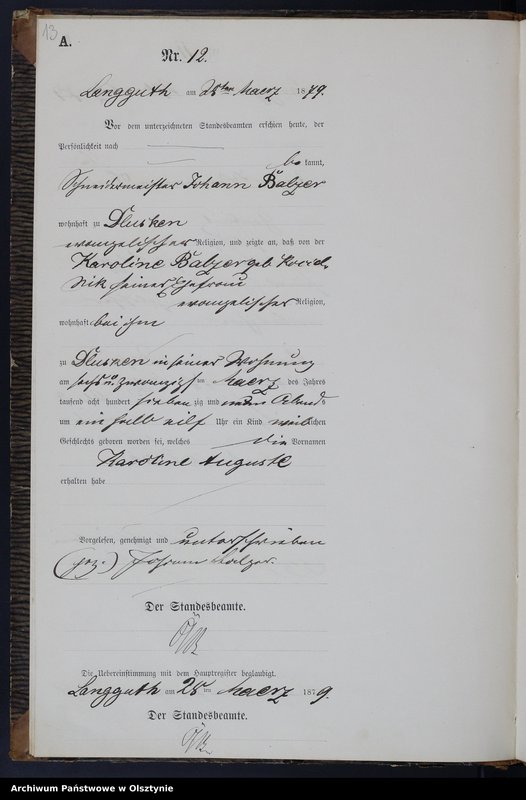 13
A.
Nr. 12.
Langguth am 28ten Maerz 1879.
Vor dem unterzeichneten Standesbeamten erschien heute, der
Persönlichkeit nach
bekannt,
Schneidermeister Johann Balzer
wohnhaft zu Dlusken
evangelischer Religion, und zeigte an, daß von der
Karoline Balzer geb.
seiner Ehefrau
evangelischer Religion,
wohnhaft bei ihm
zu Dlusken in seiner Wohnung
am sechs u. zwanzigsten Maerz des Jahres
tausend acht hundert siebenzig und neun Abends
um ein halb eilf Uhr ein Kind weiblichen
Geschlechts geboren worden sei, welches die Vornamen
Karoline Auguste
erhalten habe
Vorgelesen, genehmigt und unterschrieben
(gez.) Johann Balzer.
Der Standesbeamte.
Die Uebereinstimmung mit dem Hauptregister beglaubigt.
Langguth am 28ten Maerz 1879.
Der Standesbeamte.
Archiwum Państwowe w Olsztynie